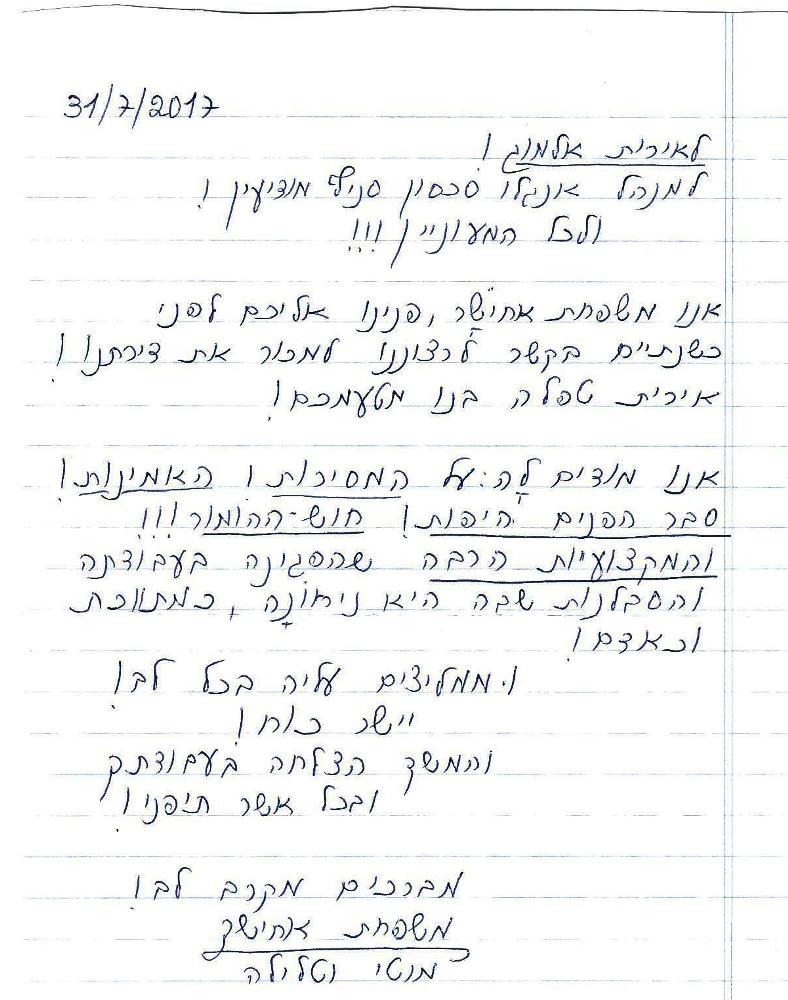 31/7/2017
לאירית אלמוג!
למנהל אנגלו סכסון סניף מודיעין!
ולכל המעוניין!!!
אנו משפחת אחישר, פנינו אליכם לפני
כשנתיים בקשר לרצוננו למכור את דירתנו!
אירית טפלה בנו מטעמכם!
אנו מודים לה: על המסירות! האמינות!
סבר הפנים היפות! חוש-ההומור!!!
והמקצועיות הרבה שהפגינה בעבודתה
והסבלנות שבה היא ניחונה, כמתווכת
וכאדם!
ו. ממליצים עליה בכל לב!
יישר כוח!
והמשך הצלחה בעבודתך
ובכל אשר תיפני!
מברכים מקרב לב!
משפחת אחישר
מוטי וטלילה